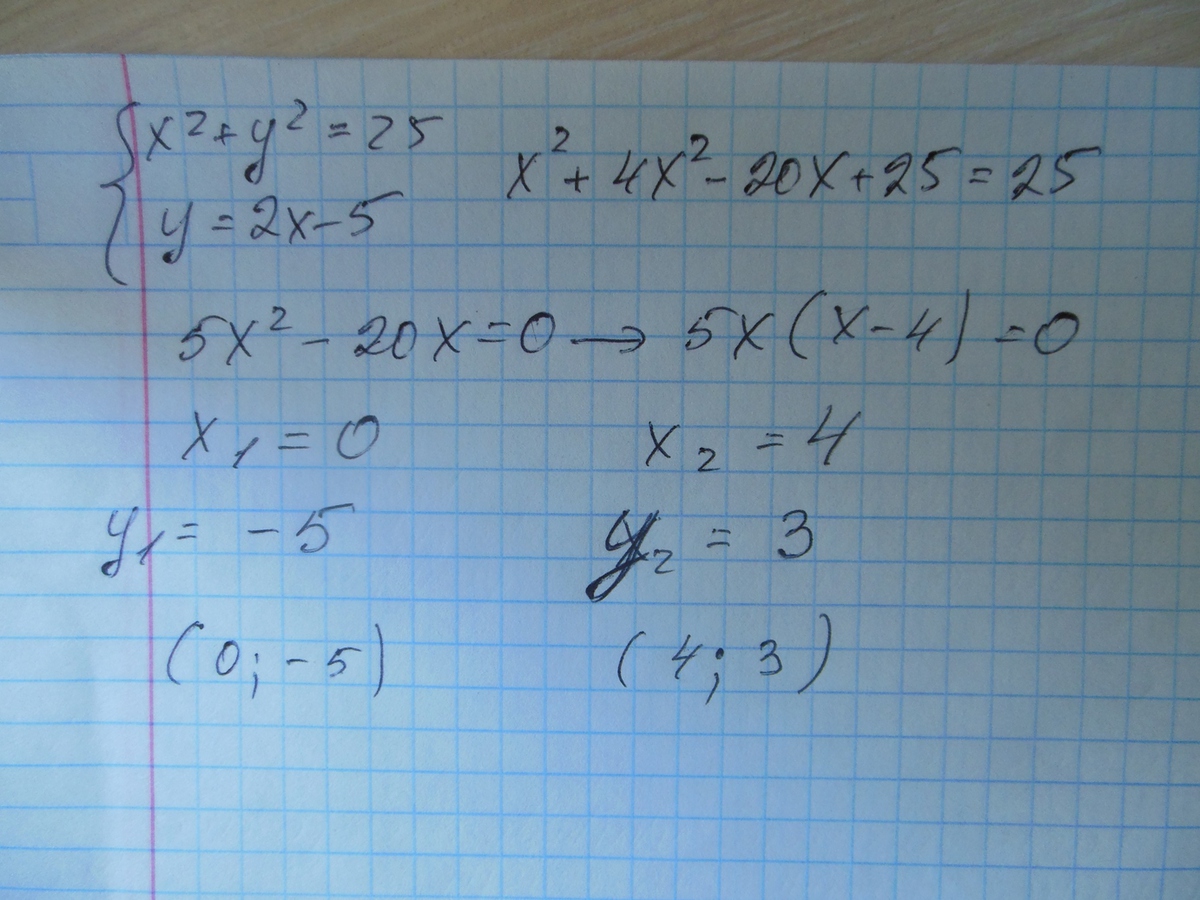 x² + y² = 25
y = 2x - 5
x² + 4x² - 20x + 25 = 25
5x² - 20x = 0 → 5x(x - 4) = 0
x₁ = 0 x₂ = 4
y₁ = -5 y₂ = 3
(0; -5) (4; 3)